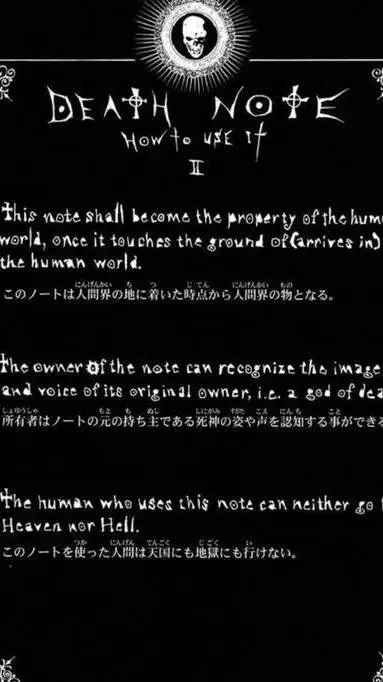 DEATH NOTE
HOW to USE It
II
This note shall become the property of the hum
world, once it touches the ground of (arrives in)
the human world.
にんげんかい ち つ じてん にんげんかい もの
このノートは人間界の地に着いた時点から人間界の物となる。
The owner of the note can recognize the image
and voice of its original owner, i.e. a god of dea
しょゆうしゃ もと も ぬし しにがみ すがた こえ にんち こと
所有者はノートの元の持ち主である死神の姿や声を認知する事ができる
The human who uses this note can neither go t
Heaven nor Hell.
つか にんげん てんごく じごく い
このノートを使った人間は天国にも地獄にも行けない。